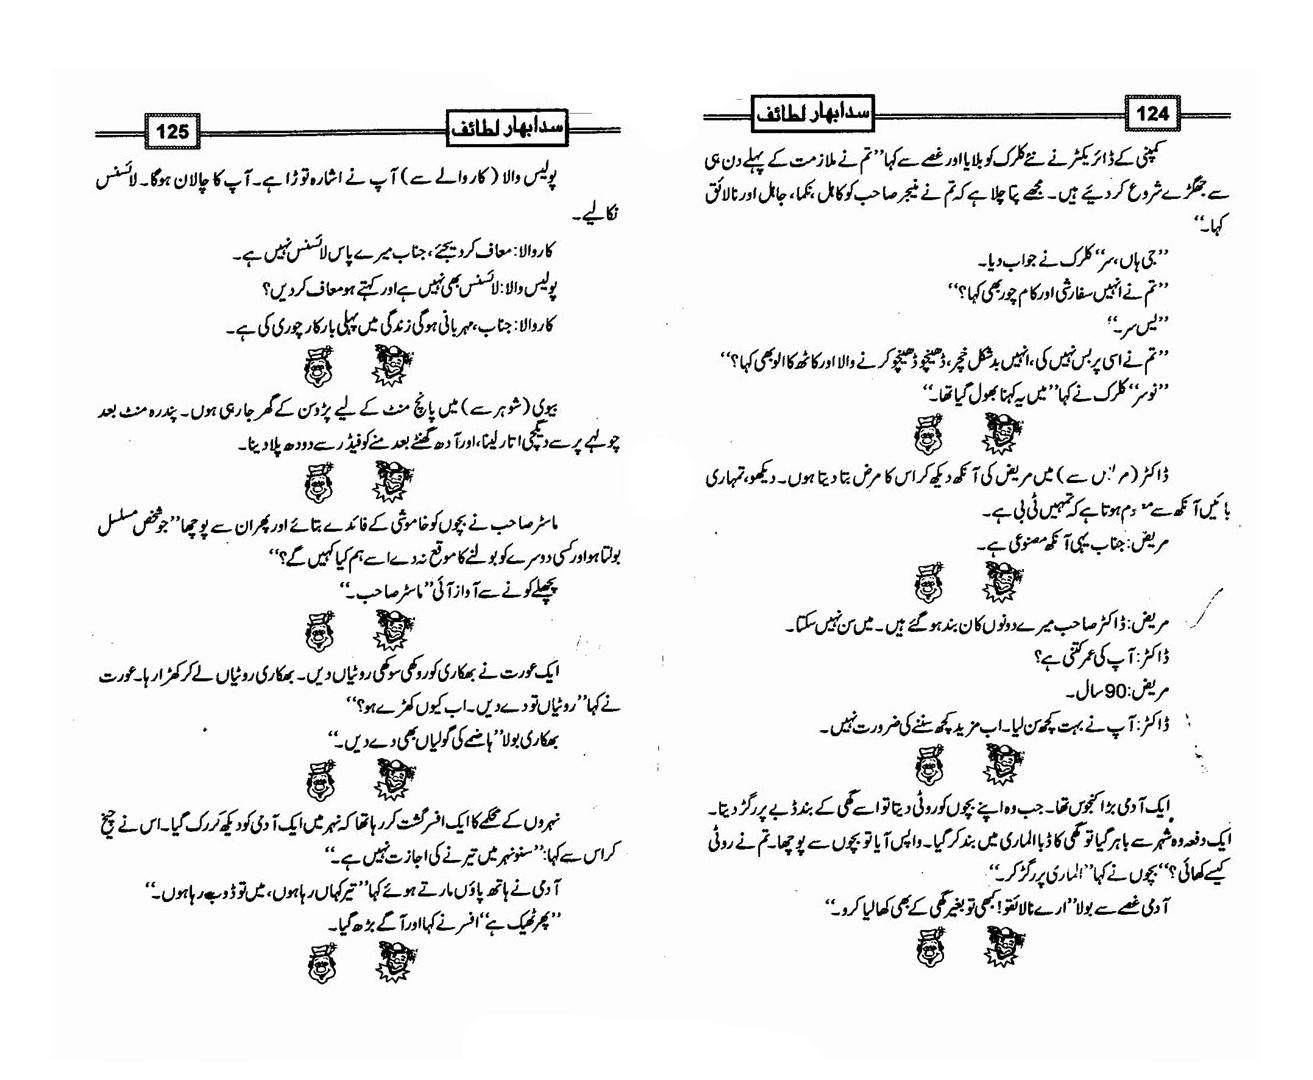 124
سدابهار لطائف
کمپنی کے ڈائریکٹر نے نئے کلرک کو بلایا اور غصے سے کہا ’’تم نے ملازمت کے پہلے دن ہی
سے جھگڑے شروع کردیئے ہیں۔ مجھے پتا چلا ہے کہ تم نے منیجر صاحب کو کاہل، نکما، جاہل اور نالائق
کہا۔‘‘
’’جی ہاں، سر‘‘ کلرک نے جواب دیا۔
’’تم نے انہیں سفارشی اور کام چور بھی کہا؟‘‘
’’یس سر۔‘‘
’’تم نے اسی پر بس نہیں کی، انہیں بدشکل خچر، ڈھینچو ڈھینچو کرنے والا اور کاٹھ کا الو بھی کہا؟‘‘
’’نو سر‘‘ کلرک نے کہا ’’میں یہ کہنا بھول گیا تھا۔‘‘
ڈاکٹر (سے) میں مریض کی آنکھ دیکھ کر اس کا مرض بتا دیتا ہوں۔ دیکھو، تمہاری
بائیں آنکھ سے ہوتا ہے کہ تمہیں ٹی بی ہے۔
مریض: جناب یہی آنکھ مصنوعی ہے۔
مریض: ڈاکٹر صاحب میرے دونوں کان بند ہوگئے ہیں۔ میں سن نہیں سکتا۔
ڈاکٹر: آپ کی عمر کتنی ہے؟
مریض: 90 سال۔
ڈاکٹر: آپ نے بہت کچھ سن لیا۔ اب مزید کچھ سننے کی ضرورت نہیں۔
ایک آدمی بڑا کنجوس تھا۔ جب وہ اپنے بچوں کو روٹی دیتا تو اسے گھی کے بند ڈبے پر رگڑ دیتا۔
ایک دفعہ وہ شہر سے باہر گیا تو گھی کا ڈبا الماری میں بند کر گیا۔ واپس آیا تو بچوں سے پوچھا۔ تم نے روٹی
کیسے کھائی؟‘‘ بچوں نے کہا ’’الماری پر رگڑ کر۔‘‘
آدمی غصے سے بولا ’’ارے نالائقو! کبھی تو بغیر گھی کے بھی کھالیا کرو۔‘‘
سدابهار لطائف
125
پولیس والا (کار والے سے) آپ نے اشارہ توڑا ہے۔ آپ کا چالان ہوگا۔ لائسنس
نکالیے۔
کار والا: معاف کر دیجئے، جناب میرے پاس لائسنس نہیں ہے۔
پولیس والا: لائسنس بھی نہیں ہے اور کہتے ہو معاف کر دیں؟
کار والا: جناب، مہربانی ہوگی زندگی میں پہلی بار کار چوری کی ہے۔
بیوی (شوہر سے) میں پانچ منٹ کے لیے پڑوسن کے گھر جا رہی ہوں۔ پندرہ منٹ بعد
چولہے پر سے دیگچی اتار لینا، اور آدھ گھنٹے بعد منے کو فیڈر سے دودھ پلا دینا۔
ماسٹر صاحب نے بچوں کو خاموشی کے فائدے بتائے اور پھر ان سے پوچھا ’’جو شخص مسلسل
بولتا ہو اور کسی دوسرے کو بولنے کا موقع نہ دے اسے ہم کیا کہیں گے؟‘‘
پچھلے کونے سے آواز آئی ’’ماسٹر صاحب۔‘‘
ایک عورت نے بھکاری کو روکھی سوکھی روٹیاں دیں۔ بھکاری روٹیاں لے کر کھڑا رہا۔ عورت
نے کہا ’’روٹیاں تو دے دیں۔ اب کیوں کھڑے ہو؟‘‘
بھکاری بولا ’’ہاضمے کی گولیاں بھی دے دیں۔‘‘
نہروں کے محکمے کا ایک افسر گشت کر رہا تھا کہ نہر میں ایک آدمی کو دیکھ کر رک گیا۔ اس نے چیخ
کر اس سے کہا: ’’سنو نہر میں تیرنے کی اجازت نہیں ہے۔‘‘
آدمی نے ہاتھ پاؤں مارتے ہوئے کہا ’’تیر کہاں رہا ہوں، میں تو ڈوب رہا ہوں۔‘‘
’’پھر ٹھیک ہے‘‘ افسر نے کہا اور آگے بڑھ گیا۔